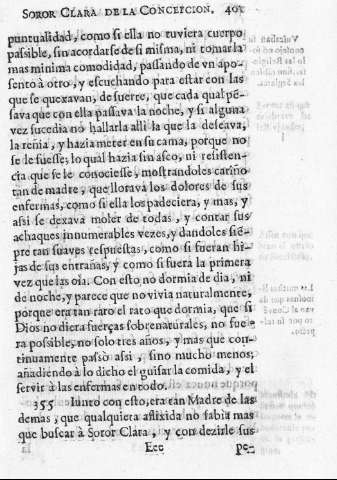 SOROR CLARA DE LA CONCEPCION. 401
puntualidad, como si ella no tuviera cuerpo
passible, sin acordarse de si misma, ni tomar la
mas minima comodidad, passando de vn apo-
sento à otro, y escuchando para estar con las
que se quexavan, de suerte, que cada qual pẽ-
sava que con ella passava la noche, y si alguna
vez sucedia no hallarla alli la que la deseava,
la reñia, y hazia meter en su cama, porque no
se le fuesse; lo qual hazia sin asco, ni resisten-
cia que se le conociesse, mostrandoles cariño
tan de madre, que llorava los dolores de sus
enfermas, como si ella los padeciera, y mas, y
assi se dexava moler de todas, y contar sus
achaques innumerables vezes, y dandoles siẽ-
pre tan suaves respuestas, como si fueran hi-
jas de sus entrañas, y como si fuera la primera
vez que las oìa. Con esto no dormia de dia, ni
de noche, y parece que no vivia naturalmente,
porque era tan raro el rato que dormia, que si
Dios no diera fuerças sobrenaturales, no fue-
ra possible, no solo tres años, y mas que con-
tinuamente passò assi, sino mucho menos,
añadiendo à lo dicho el guisar la comida, y el
servir à las enfermas en todo.
355 Iunto con esto, era tan Madre de las
demas, que qualquiera aflixida no sabia mas
que buscar à Soror Clara, y con dezirle sus
Eee pe-